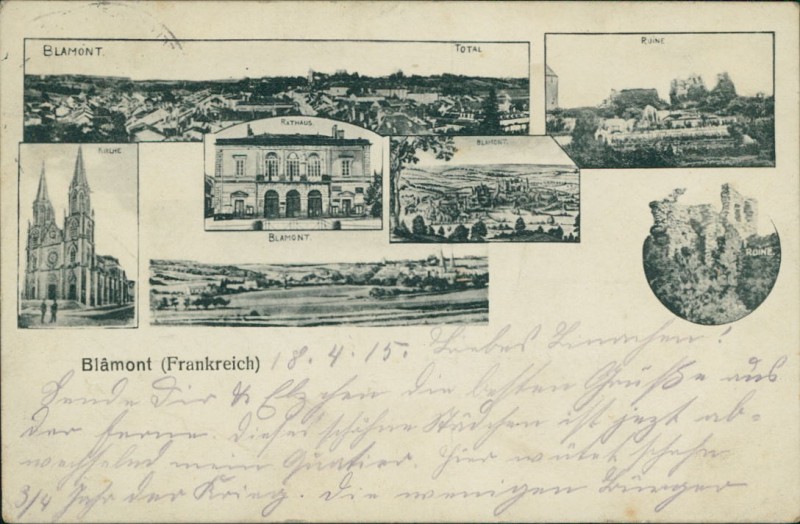 BLAMONT.
TOTAL
RUINE
RATHAUS.
KIRCHE
BLAMONT.
BLAMONT.
RUINE.
Blâmont (Frankreich) 18. 4. 15. Liebes Linachen!
Sende Dir & Elschen die besten Grüße aus
der ferne. Dieses schöhne Städchen ist jezt ab-
wechselnd mein Quatier. Hier wütet schohn
3/4 Jahr der Krieg. Die wenigen Bürger